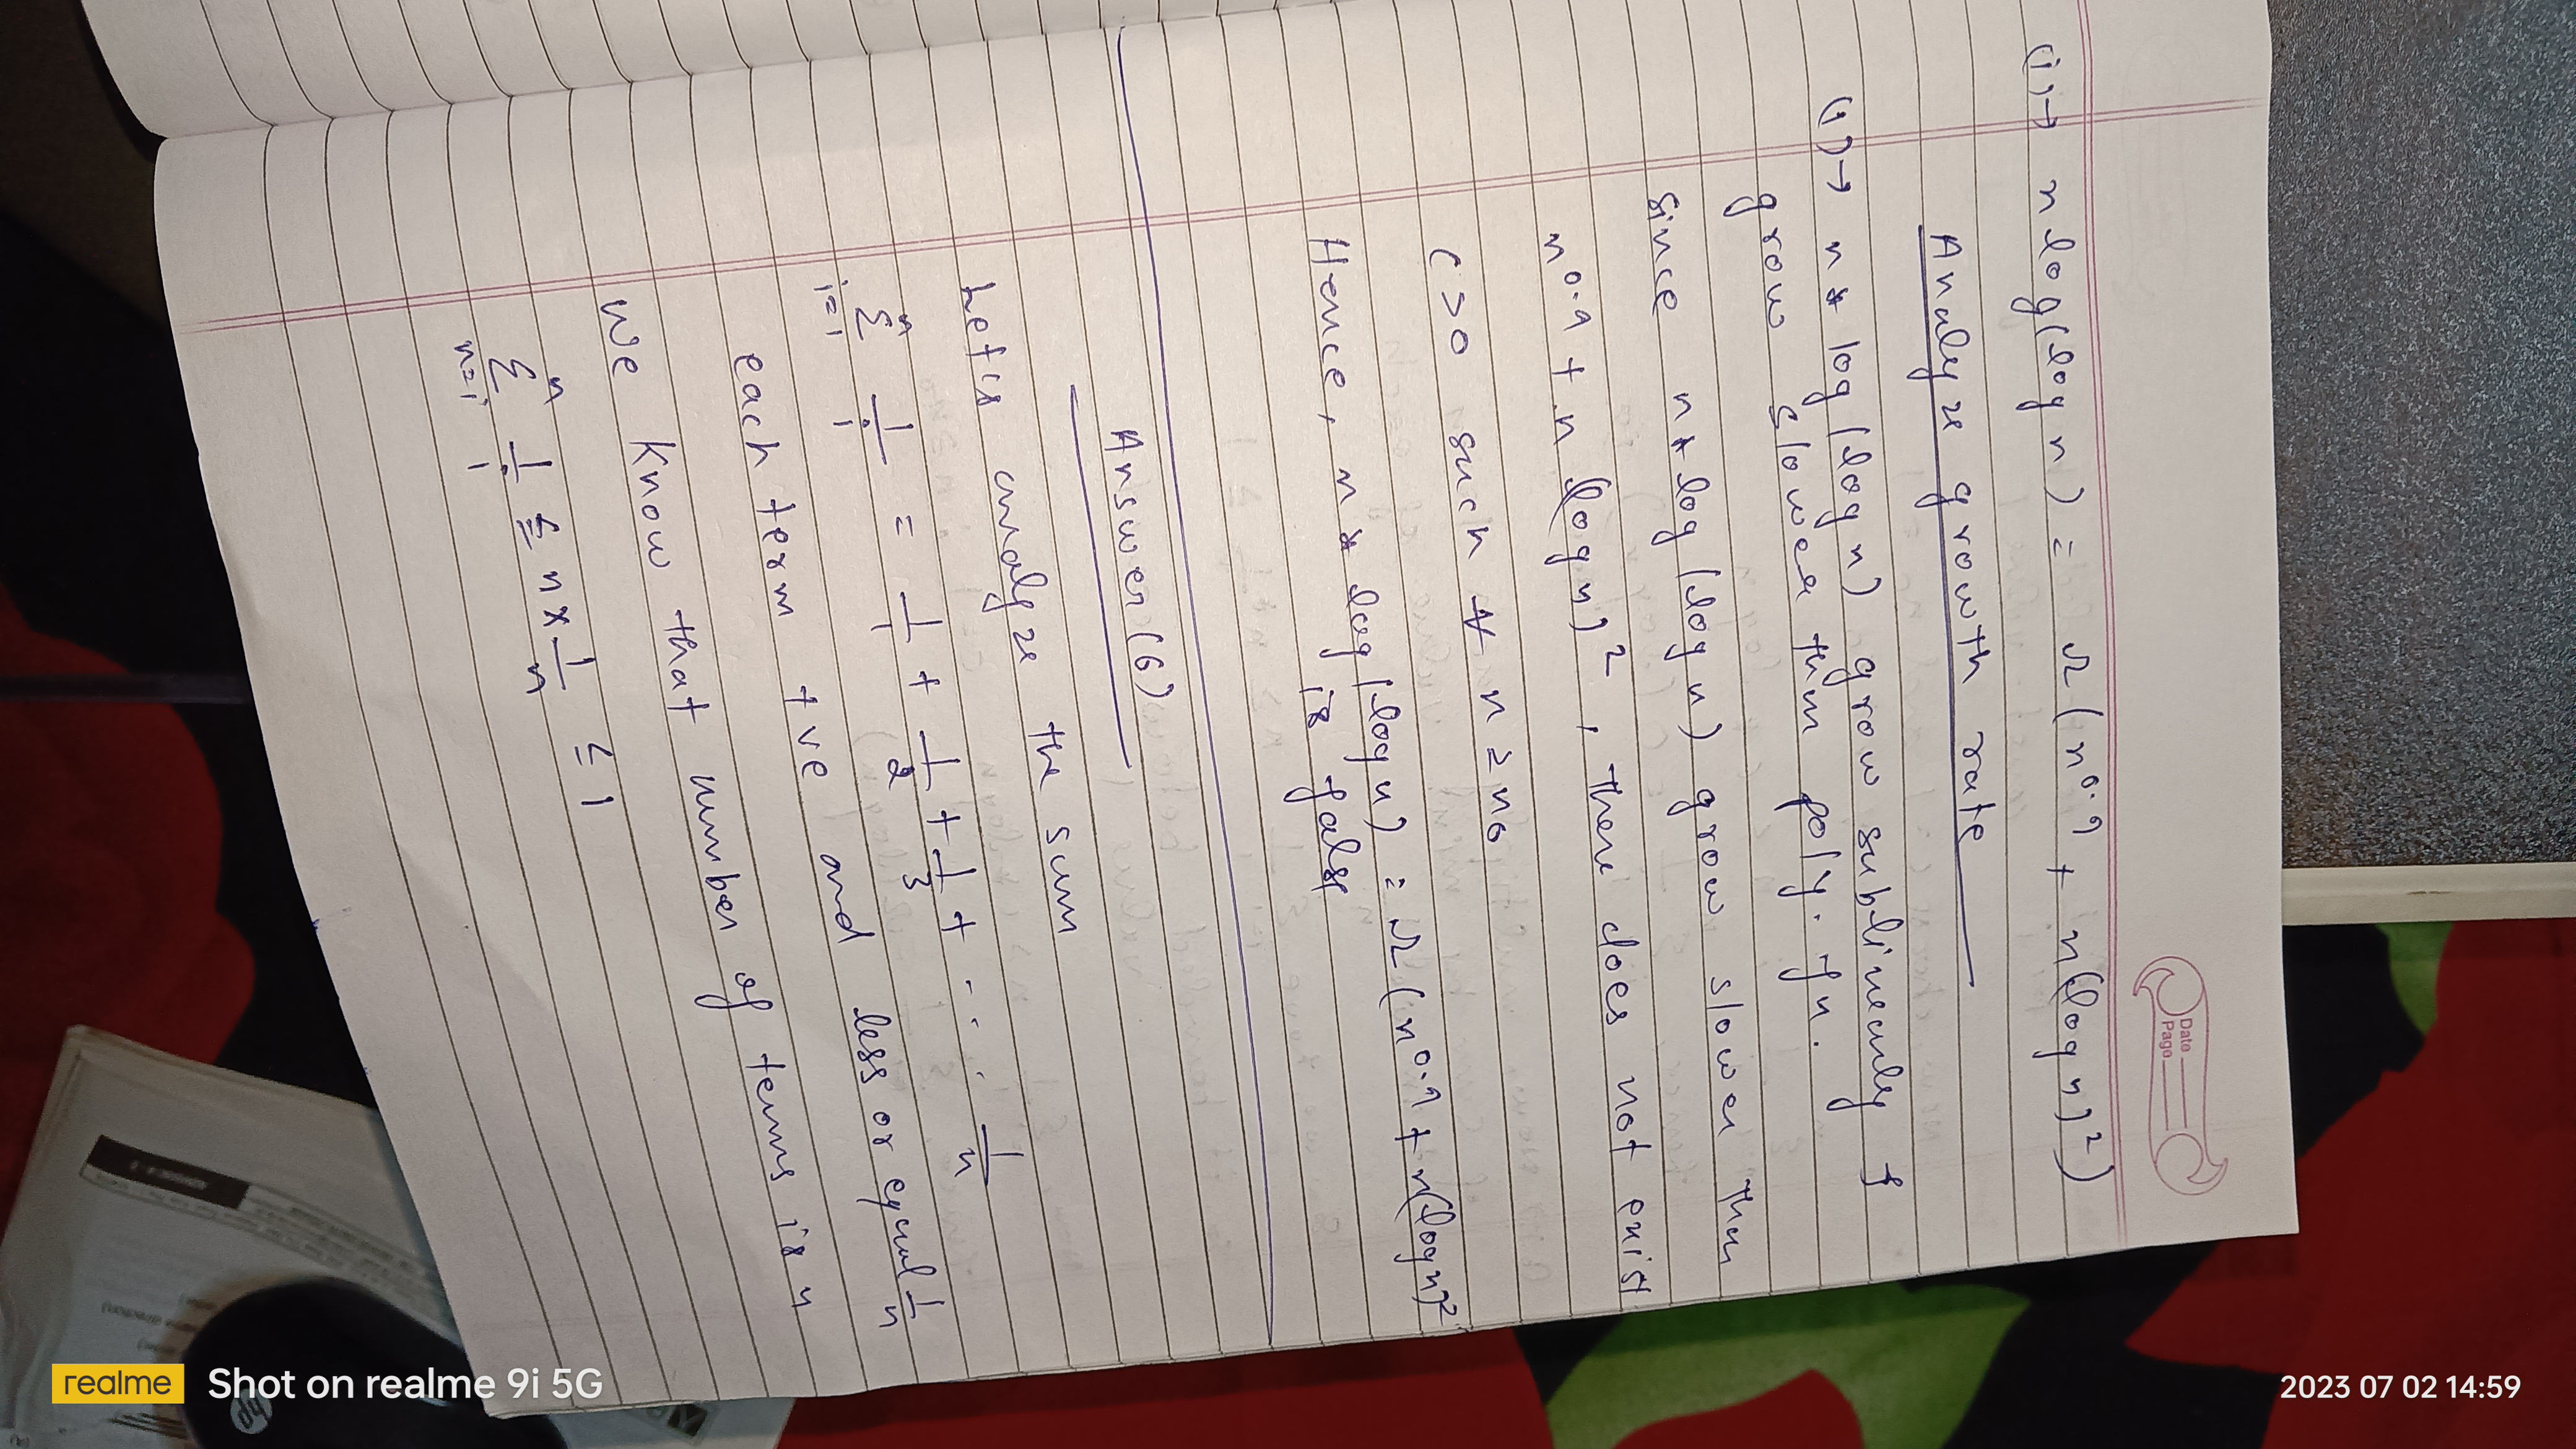 Date
Page
(i)→ n log(log n) = Ω (n^0.9 + n(log n)^2)
Analyze growth rate
(i)→ n * log (log n) grow sublinearly &
grow slower than poly. fn.
Since n * log (log n) grow slower than
n^0.9 + n (log n)^2 , there does not exist
c>0 such ∀ n ≥ n0
Hence, n * log (log n) = Ω (n^0.9 + n(log n)^2
is false
Answer (6)
Let's analyze the sum
n Σ i=1 1/i = 1/1 + 1/2 + 1/3 + - - . . 1/n
each term +ve and less or equal 1/n
We know that number of terms is n
n Σ n=i 1/i ≤ n x 1/n ≤ 1
2023 07 02 14:59
realme Shot on realme 9i 5G
hp